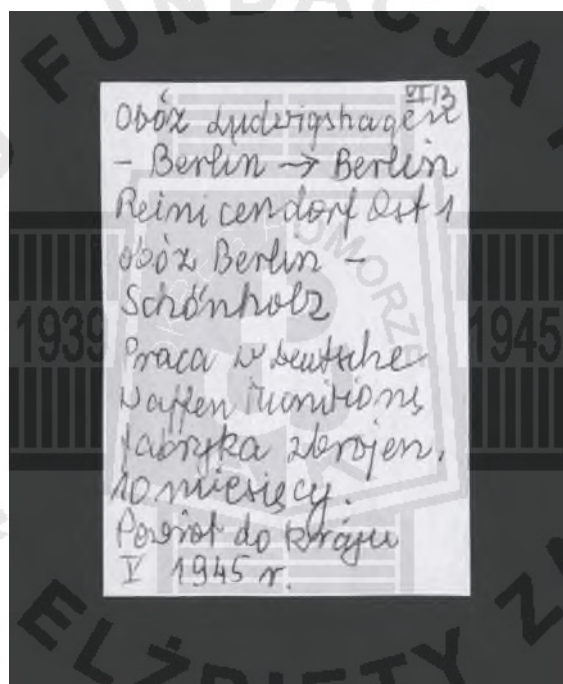 VI/3
Obóz Ludwigshagen
- Berlin → Berlin
Reinicendorf Ost 1
obóz Berlin -
Schönholz
Praca w Deutsche
Waffen Munitions
fabryka zbrojen.
10 miesięcy.
Powrót do kraju
V 1945 r.
FUNDACJA
1939
1945
POMORZE
ELŻBIETY ZA